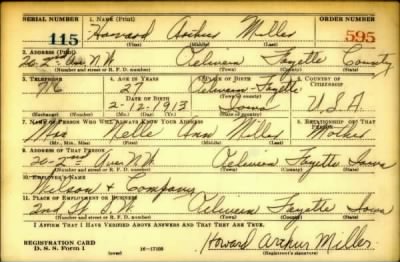 SERIAL NUMBER 1. NAME (Print) ORDER NUMBER
115 Howard Arthur Miller 595
(First) (Middle) (Last)
2. ADDRESS (Print)
20-2nd Ave N.W. Oelwein Fayette County
(Number and street or R. F. D. number) (Town) (County) (State)
3. TELEPHONE 4. AGE IN YEARS 5. PLACE OF BIRTH 6. COUNTRY OF CITIZENSHIP
716 27 Oelwein-Fayette
DATE OF BIRTH
2-12-1913 Iowa U.S.A.
7. NAME OF PERSON WHO WILL ALWAYS KNOW YOUR ADDRESS 8. RELATIONSHIP OF THAT PERSON
Mrs Nelle Ann Miller Mother
9. ADDRESS OF THAT PERSON
20-2nd Ave N.W. Oelwein Fayette Iowa
(Number and street or R. F. D. number) (Town) (County) (State)
10. EMPLOYER'S NAME
Wilson & Company
11. PLACE OF EMPLOYMENT OR BUSINESS
2nd St. S.W. Oelwein Fayette Iowa
(Number and street or R. F. D. number) (Town) (County) (State)
I AFFIRM THAT I HAVE VERIFIED ABOVE ANSWERS AND THAT THEY ARE TRUE.
REGISTRATION CARD
D. S. S. Form 1
(over) 16-17105
Howard Arthur Miller
(Registrant's signature)